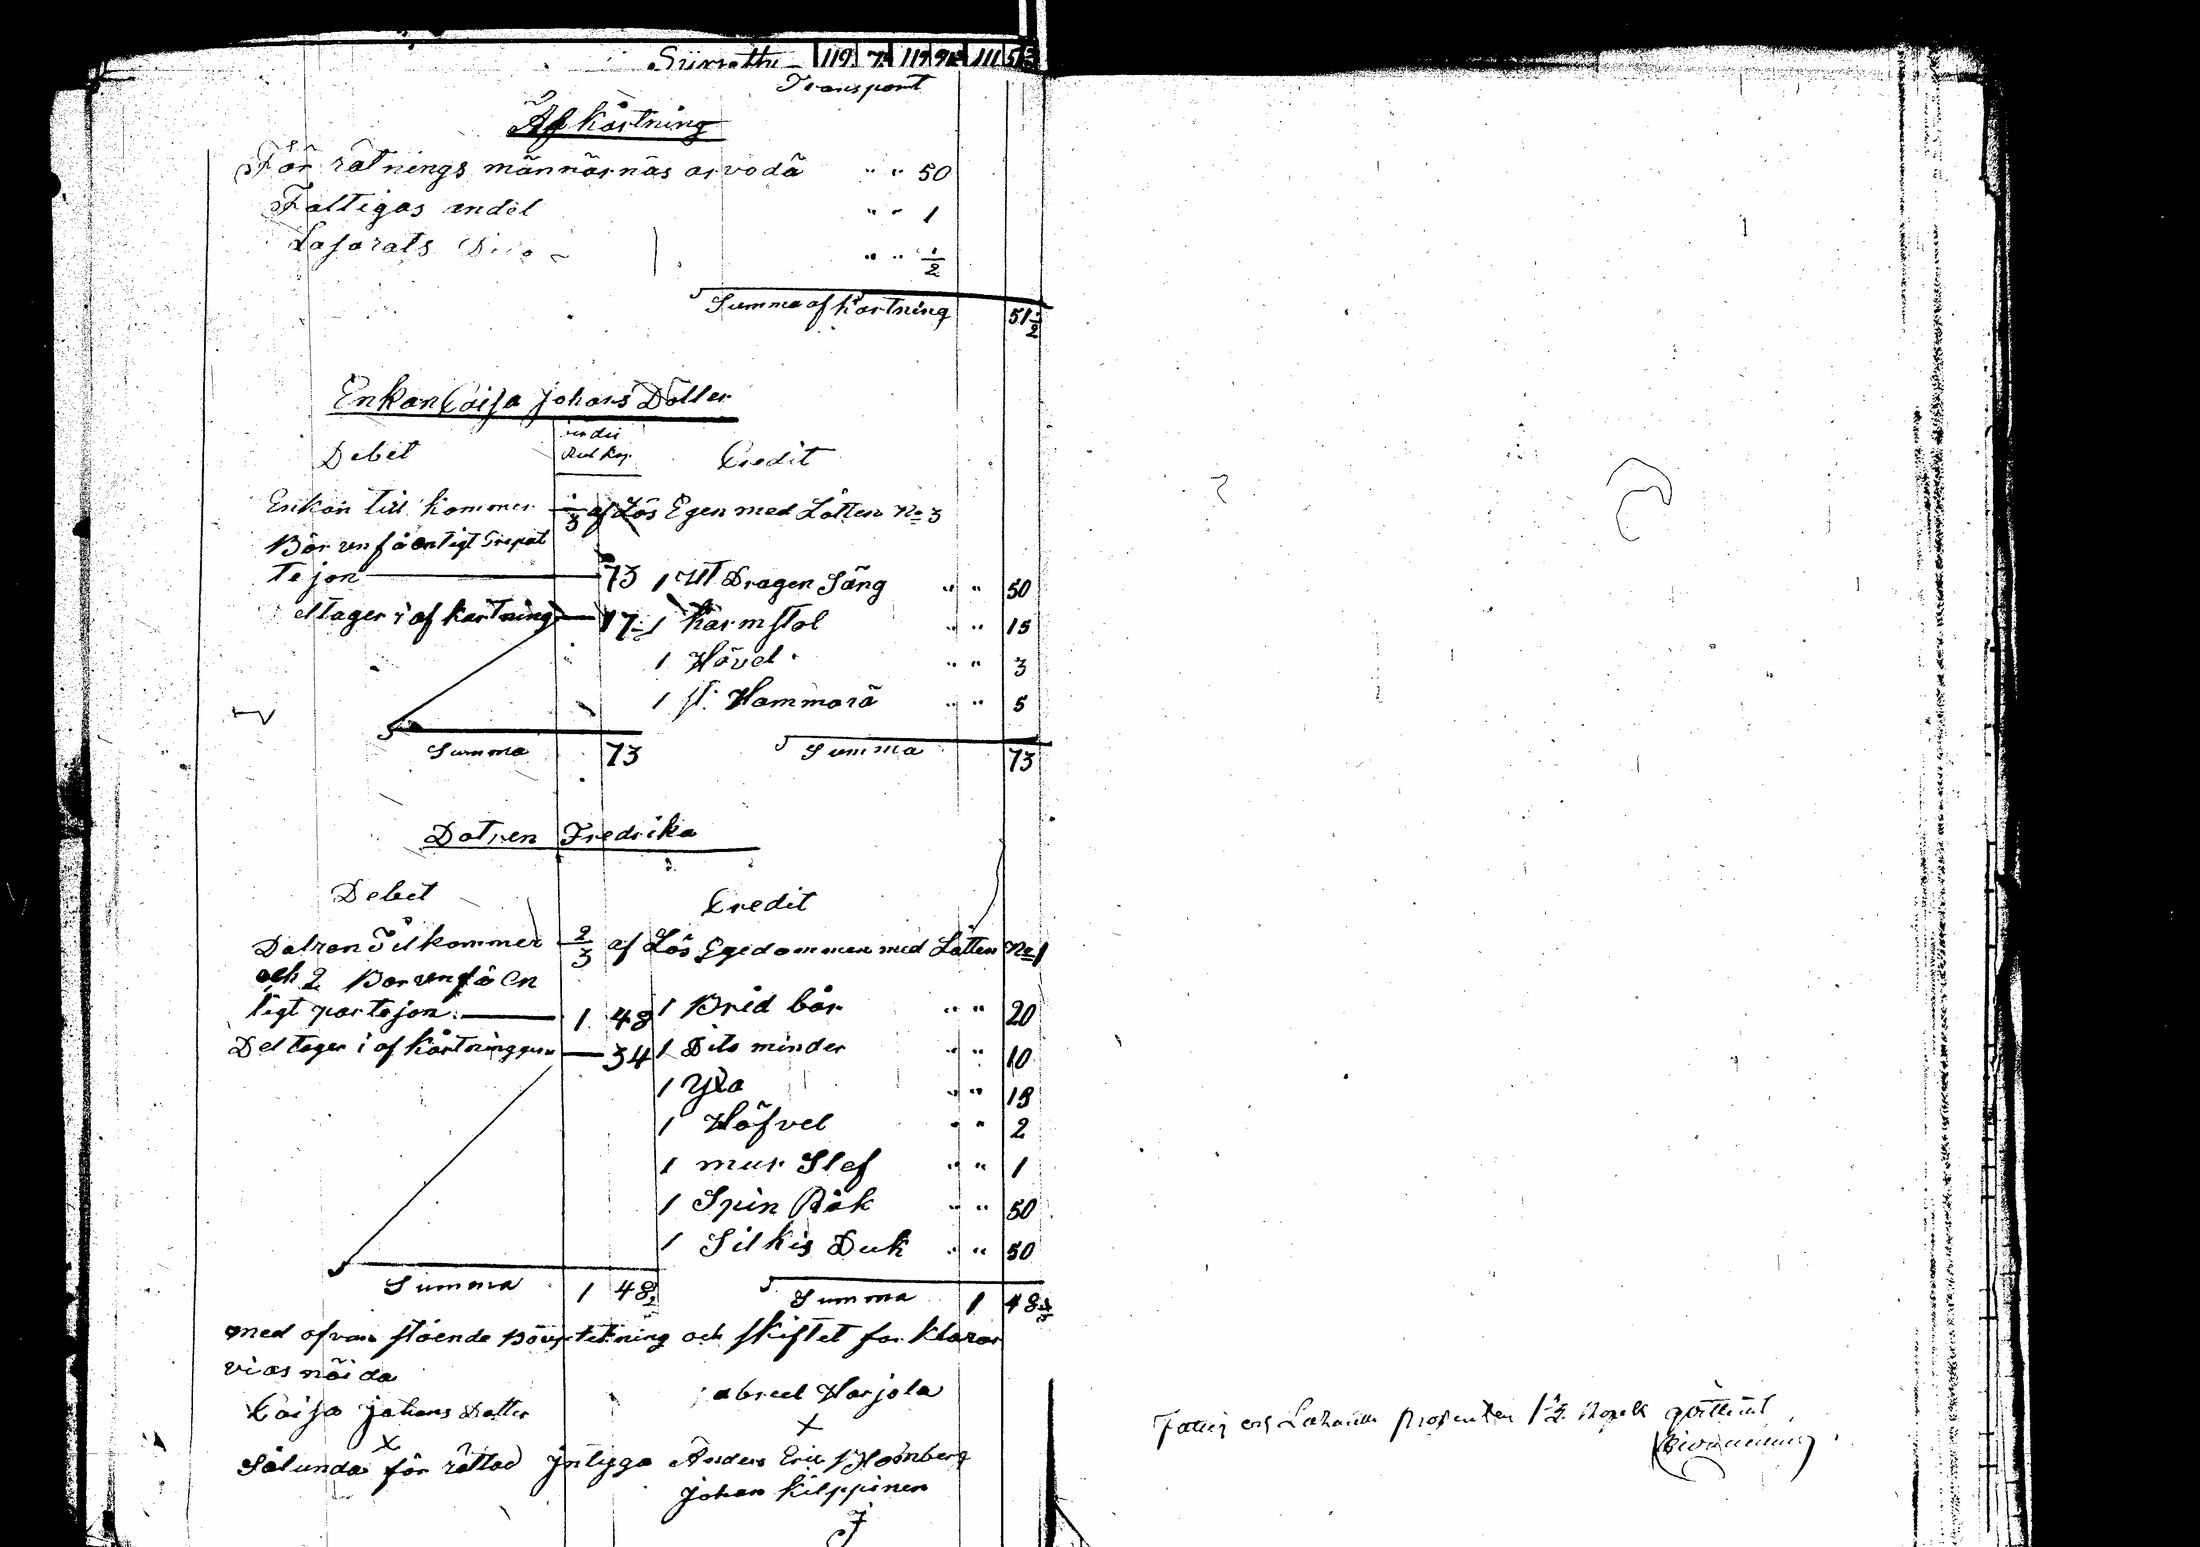 Siirrettu 119 7 119 92 111 5
Transport
Af kårtning
För rätnings männärnäs arvodä " " 50
Fattigas andel " " 1
Lasarats Dito " " 1/2
Summa af kortning 51 1/2
Enkan Caisa Johans Dotter
Debet Rub kop Credit
Enkan till kommer 1/3 af Lös Egen med Lotten No 3
Bör
tejon 73 1 Ut Dragen Säng " " 50
eltager i af kortning 17 1 Karmstol " " 15
1 Hövel " " 3
1 st Hammarä " " 5
Summa 73 Summa 73
Dotren Fredrika
Debet Credit
Dotren Tilkommer 2/3 af Lös Egedommen med Lotten No 1
och 2
ligt partejon 1 48 1 Bröd bår " " 20
Del tager i af kårtninggen 34 1 Dito minder " " 10
1 Yxa " " 15
1 Höfvel " " 2
1 mur Slef " " 1
1 Spin Råk " " 50
1 Silkis Duk " " 50
Summa 1 48 1/2 Summa 1 48
med ofvan stöende Boup tekning och skiftet for klarar
vi os nöida
Caisa Johans Dotter abriel Harjola
X X
Sålunda för rättad Intyga Anders Eric Holmberg
Johan Kilppinen
J
Fattig och Lazaretts procenten 1 1/2 Kopek qvitteras